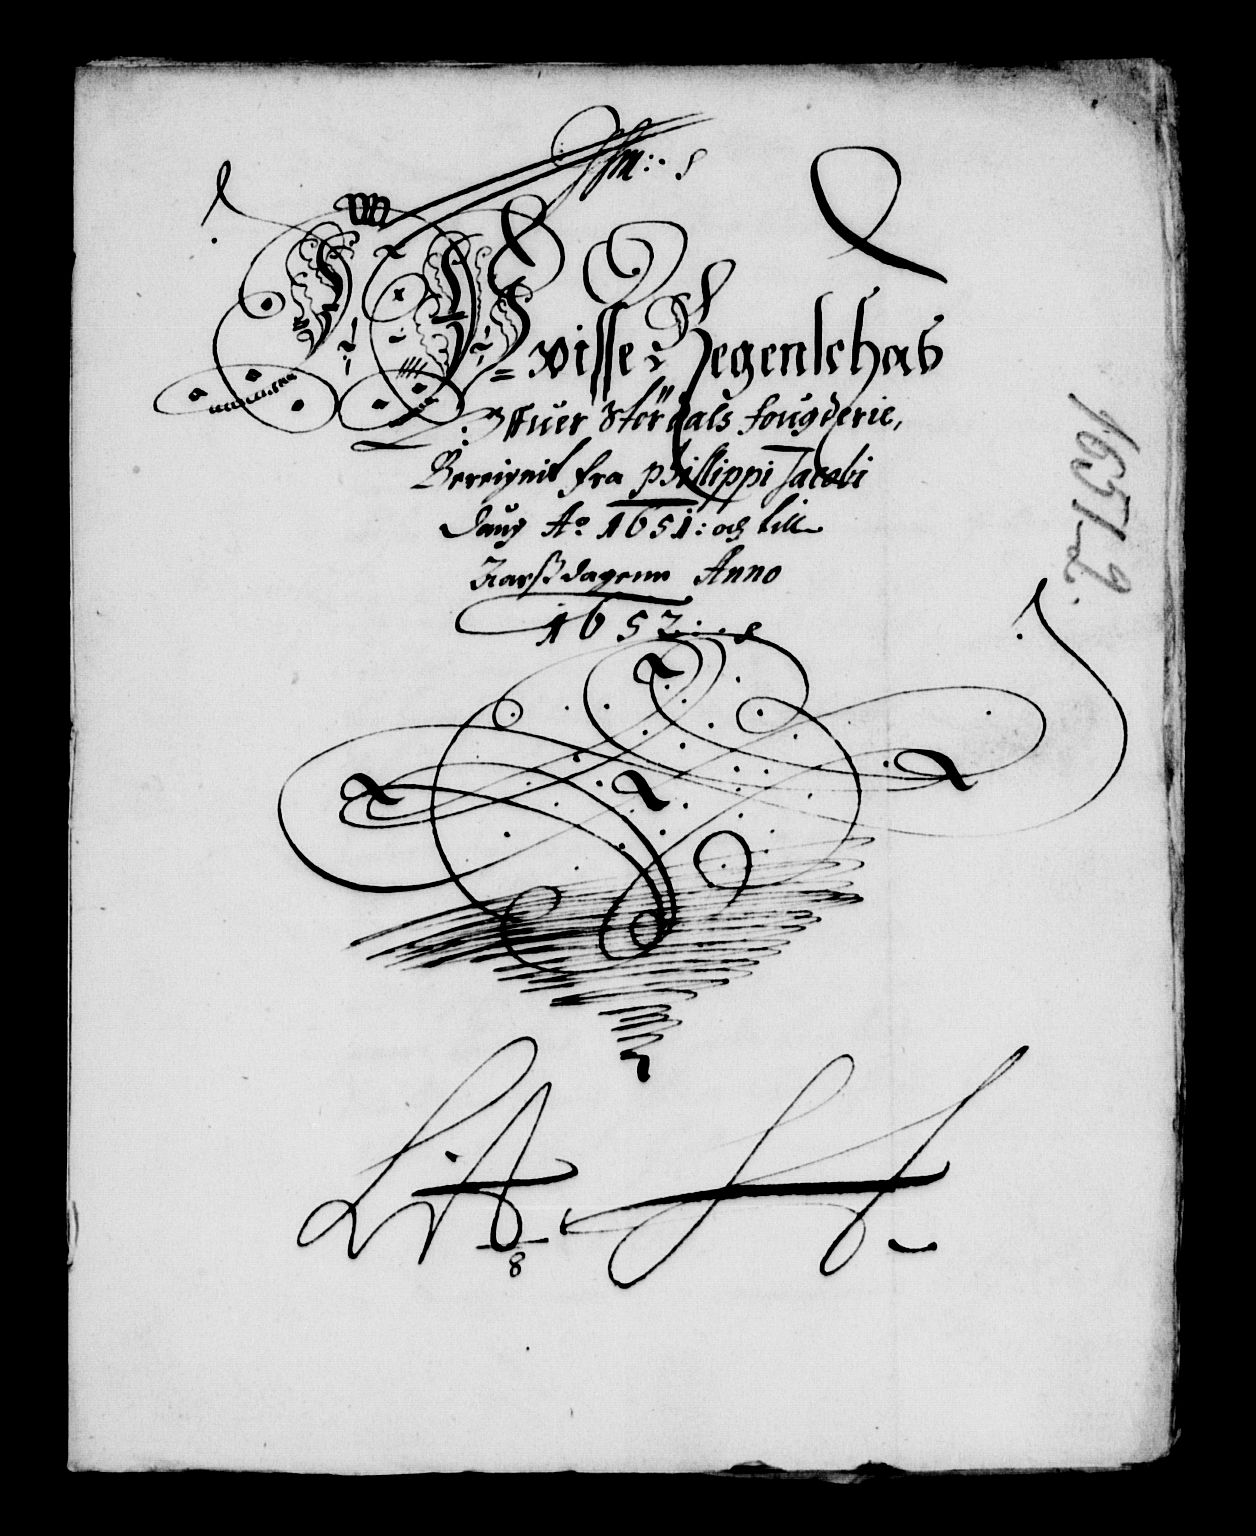 Wisse Regenschab
Offuer Størdals fougderie,
Bereignit fra Phillippi Jacobi
Daug A° 1651: och till
Aarsdagenn Anno
1652:
Lit
8
1651–2.